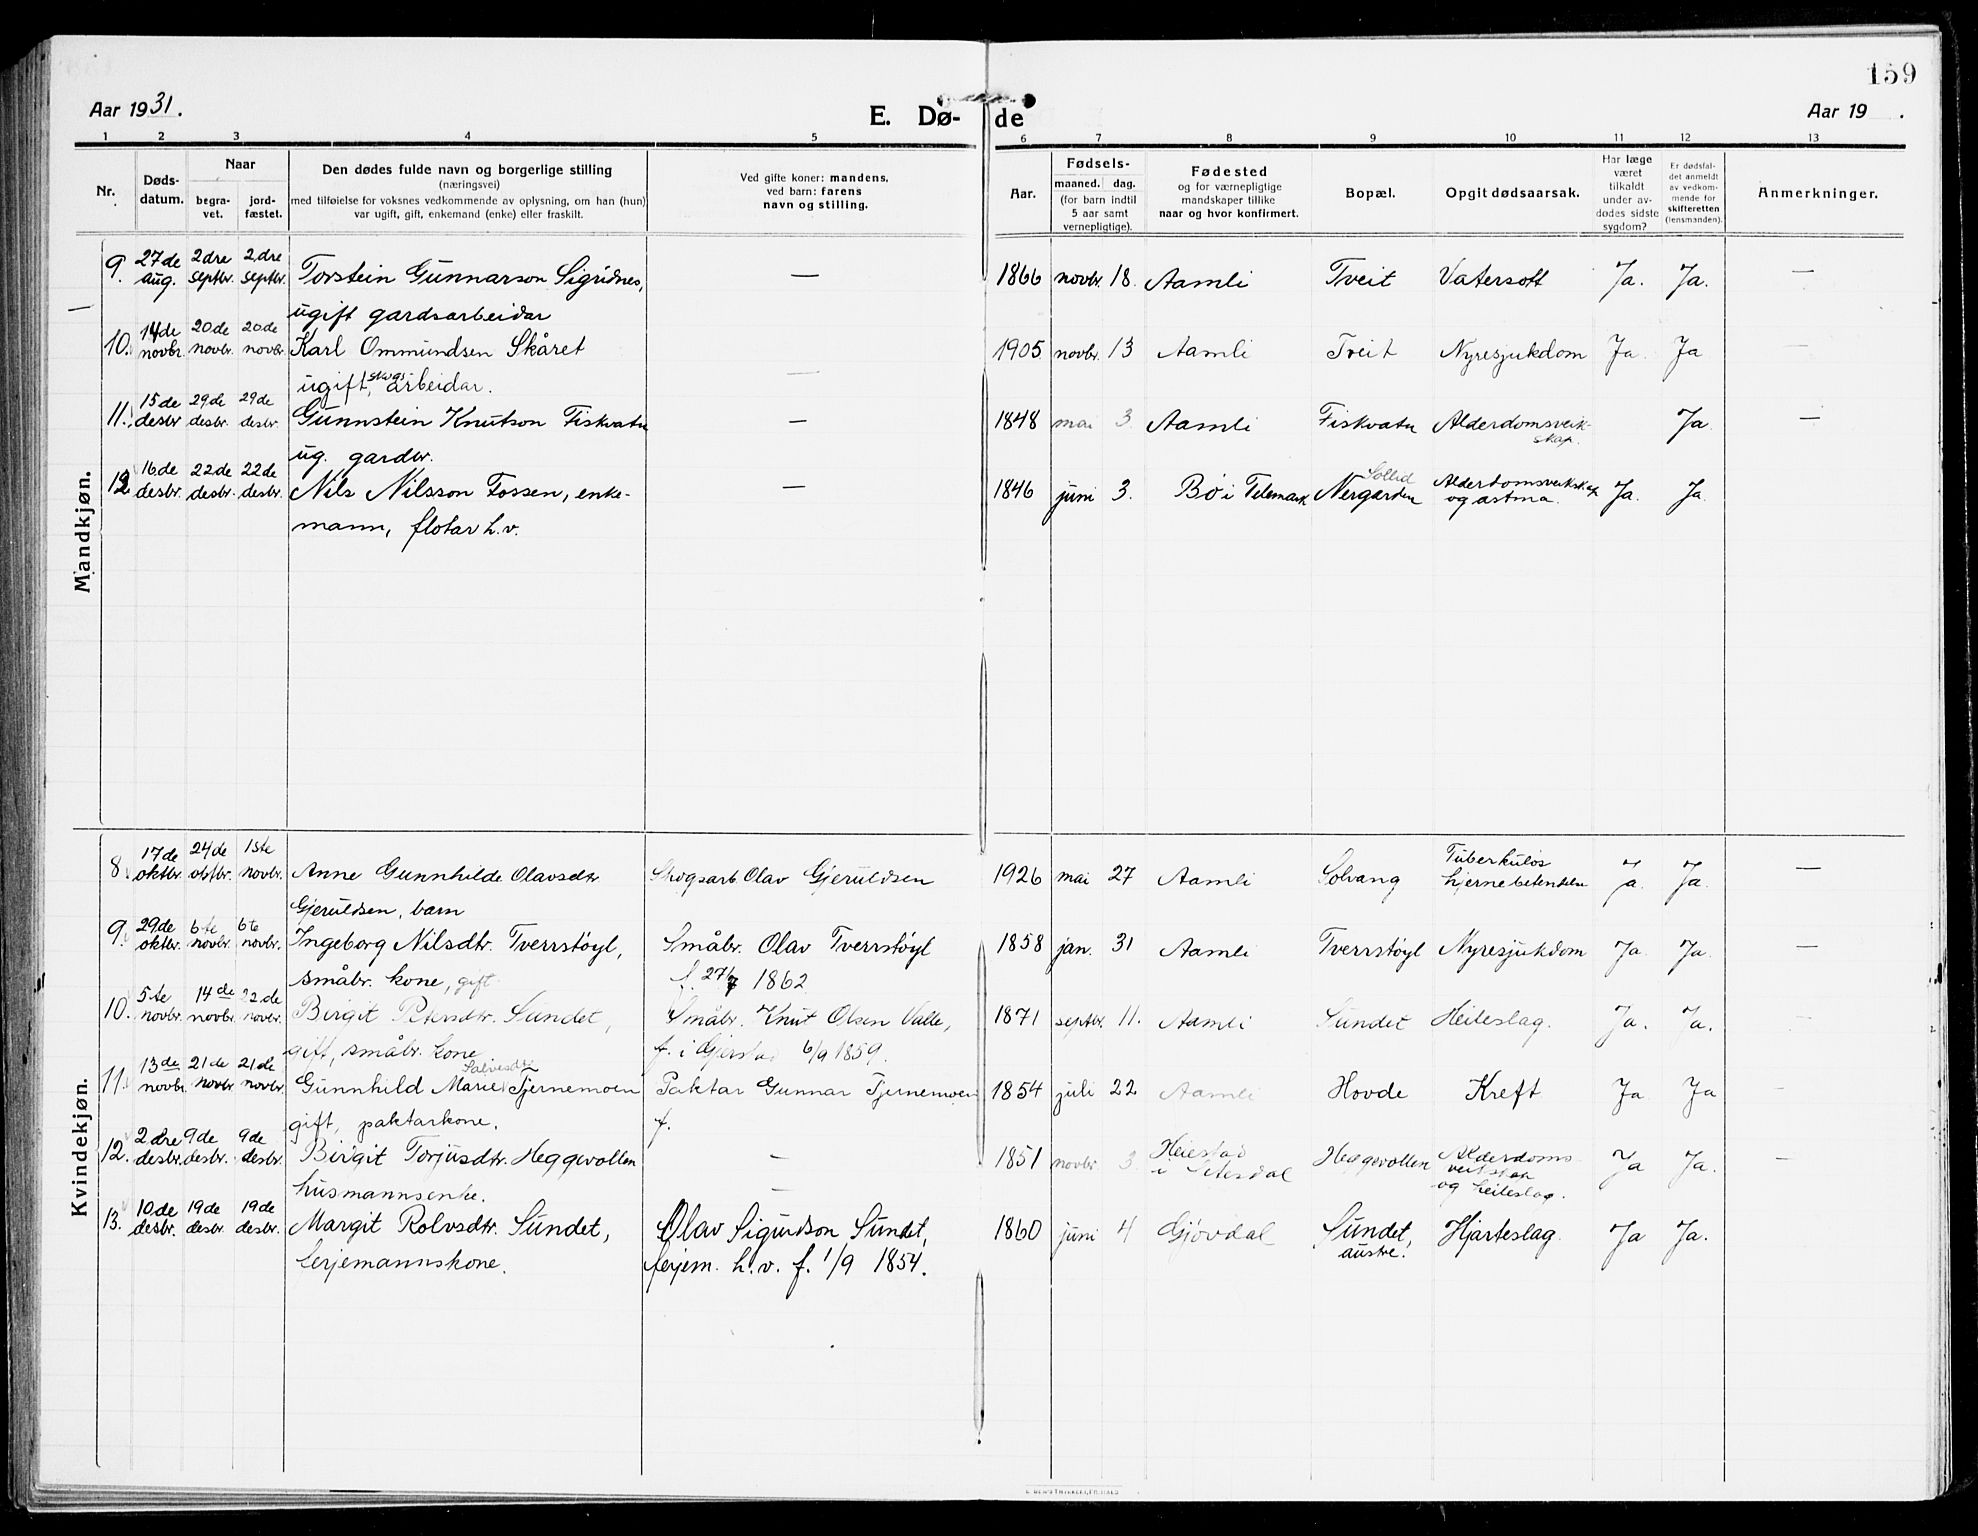 159
Aar 1931.
E. Dø-de
Aar 19 .
1 2 3 4 5 6 7 8 9 10 11 12 13
Nr.
Døds-
datum.
Naar
begra-
vet.
jord-
fæstet.
Den dødes fulde navn og borgerlige stilling
(næringsvei)
med tilføielse for voksnes vedkommende av oplysning, om han (hun)
var ugift, gift, enkemand (enke) eller fraskilt.
Ved gifte koner: mandens,
ved barn: farens
navn og stilling.
Aar.
Fødsels-
maaned. dag.
(for barn indtil
5 aar samt
vernepligtige).
Fødested
og for værnepligtige
mandskaper tillike
naar og hvor konfirmert.
Bopæl.
Opgit dødsaarsak.
Har læge
været
tilkaldt
under av-
dødes sidste
sygdom?
Er dødsfal-
det anmeldt
av vedkom-
mende for
skifteretten
(lensmanden).
Anmerkninger.
Mandkjøn.
9. 27de aug. 2dre septbr. 2dre septbr. Torstein Gunnarson Sigridnes, — 1866 novbr. 18. Aamli Tveit Vatersott Ja. Ja. —
ugift gardsarbeidar
10. 14de novbr. 20de novbr. 20de novbr. Karl Ommundsen Skåret — 1905 novbr. 13 Aamli Tveit Nyresjukdom Ja. Ja —
ugift, skogsarbeidar.
11. 15de desbr 29de desbr. 29de desbr. Gunnstein Knutson Fiskvatn — 1848 mai 3. Aamli Fiskvatn Alderdomsveik-
skap. Ja. —
ug. gardbr.
12. 16de desbr. 22de desbr. 22de desbr. Nils Nilsson Fossen, enke- — 1846 juni 3. Bø i Telemark Sollid Nergarden Alderdomsveikskap
og astma. Ja. Ja.
mann, flotar h.v.
Kvindekjøn.
8. 17de oktbr. 24de oktbr. 1ste novbr. Anne Gunnhilde Olavsdtr Skogsarb. Olav Gjeruldsen 1926 mai 27 Aamli Solvang Tuberkuløs
hjernebetendelse Ja. Ja. —
Gjeruldsen, barn
9. 29de oktbr. 6te novbr. 6te novbr. Ingeborg Nilsdtr. Tverrstøyl, Småbr. Olav Tverrstøyl 1858 jan. 31 Aamli Tverrstøyl Nyresjukdom Ja. Ja. —
småbr. kone, gift f. 27/7 1862
10. 5te novbr. 14de novbr. 22de novbr. Birgit Petersdtr. Sundet, Småbr. Knut Olsen Valle, 1871 septbr. 11. Aamli Sundet Heileslag. Ja. Ja.
gift, småbr. kone f. i Gjerstad 6/9 1859.
11. 13de novbr. 21de novbr. 21de novbr. Gunnhild Marie Salvesdtr Tjernemoen Paktar Gunnar Tjernemoen 1854 juli 22 Aamli Hovde Kreft Ja Ja
gift, paktarkone. f.
12. 2dre desbr. 9de desbr. 9de desbr. Birgit Torjusdtr. Heggevollen — 1851 novbr. 3. Heiestad
i Setesdal Heggevollen Alderdoms-
veikskap
og heileslag. Ja Ja. —
husmannsenke. —
13. 10de desbr. 19de desbr. 19de desbr. Margit Rolvsdtr. Sundet, Olav Sigurdson Sundet, 1860 juni 4 Gjøvdal Sundet,
austre. Hjarteslag. Ja Ja.
ferjemannskone. ferjem. h.v. f. 1/9 1854.